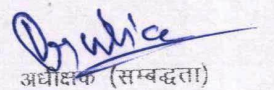 अधीक्षक (सम्बद्धता)